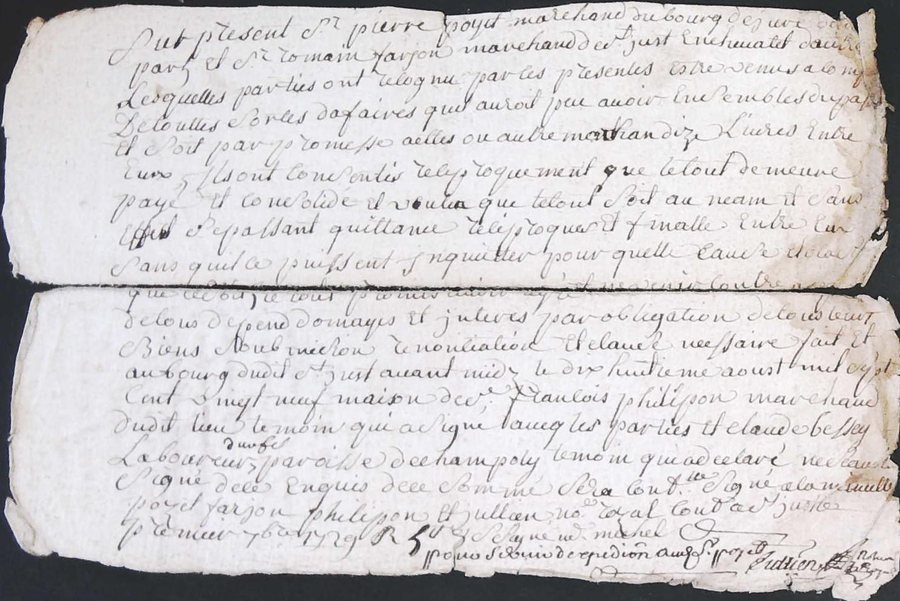 Fut present Sr pierre poyet marchand du bourg de jure
part et Sr romain farjon marchand de St just En chevalet dautre
Lesquelles parties ont recognu par les presentes Estre venus a compte
De touttes Sortes dafaires quil auroit peu avoir Ensembles du passé
Et Soit par promesse acelles ou autre marchandize Livres Entre
Eux, Ils ont Consentis reciproquement que le tout demeure
payé et Consolidé et voulu que le tout Soit au neam et Sans
Effet Se passant quittance reciproques Et finalle Entre Eux
Sans quil ce puissent Inquietter pour quelle cause
que ce soit, le tout promis avoir agreé
de tous depend domages et jnteres par obligation de tous leurs
Biens Soubmission renontiation Et clause nessaire fait Et
au bourg dudit St just avant midy le dix huitieme aoust mil sept
Cent vingt neuf maison de Sr François philippon marchand
dudit lieu temoin qui a Signé avecq les parties Et claude bessey
Laboureur paroisse de champoly temoin qui a declaré ne Scavoir
Signé de ce Enquis de ce Sommé Sera Cont. Signé a la minutte
poyet farjon philippon et jullien nore royal Cont a St just le
premier 7bre 1729 R Signé michel
pour Servir dexpedition audt Sr poyet
Jullien